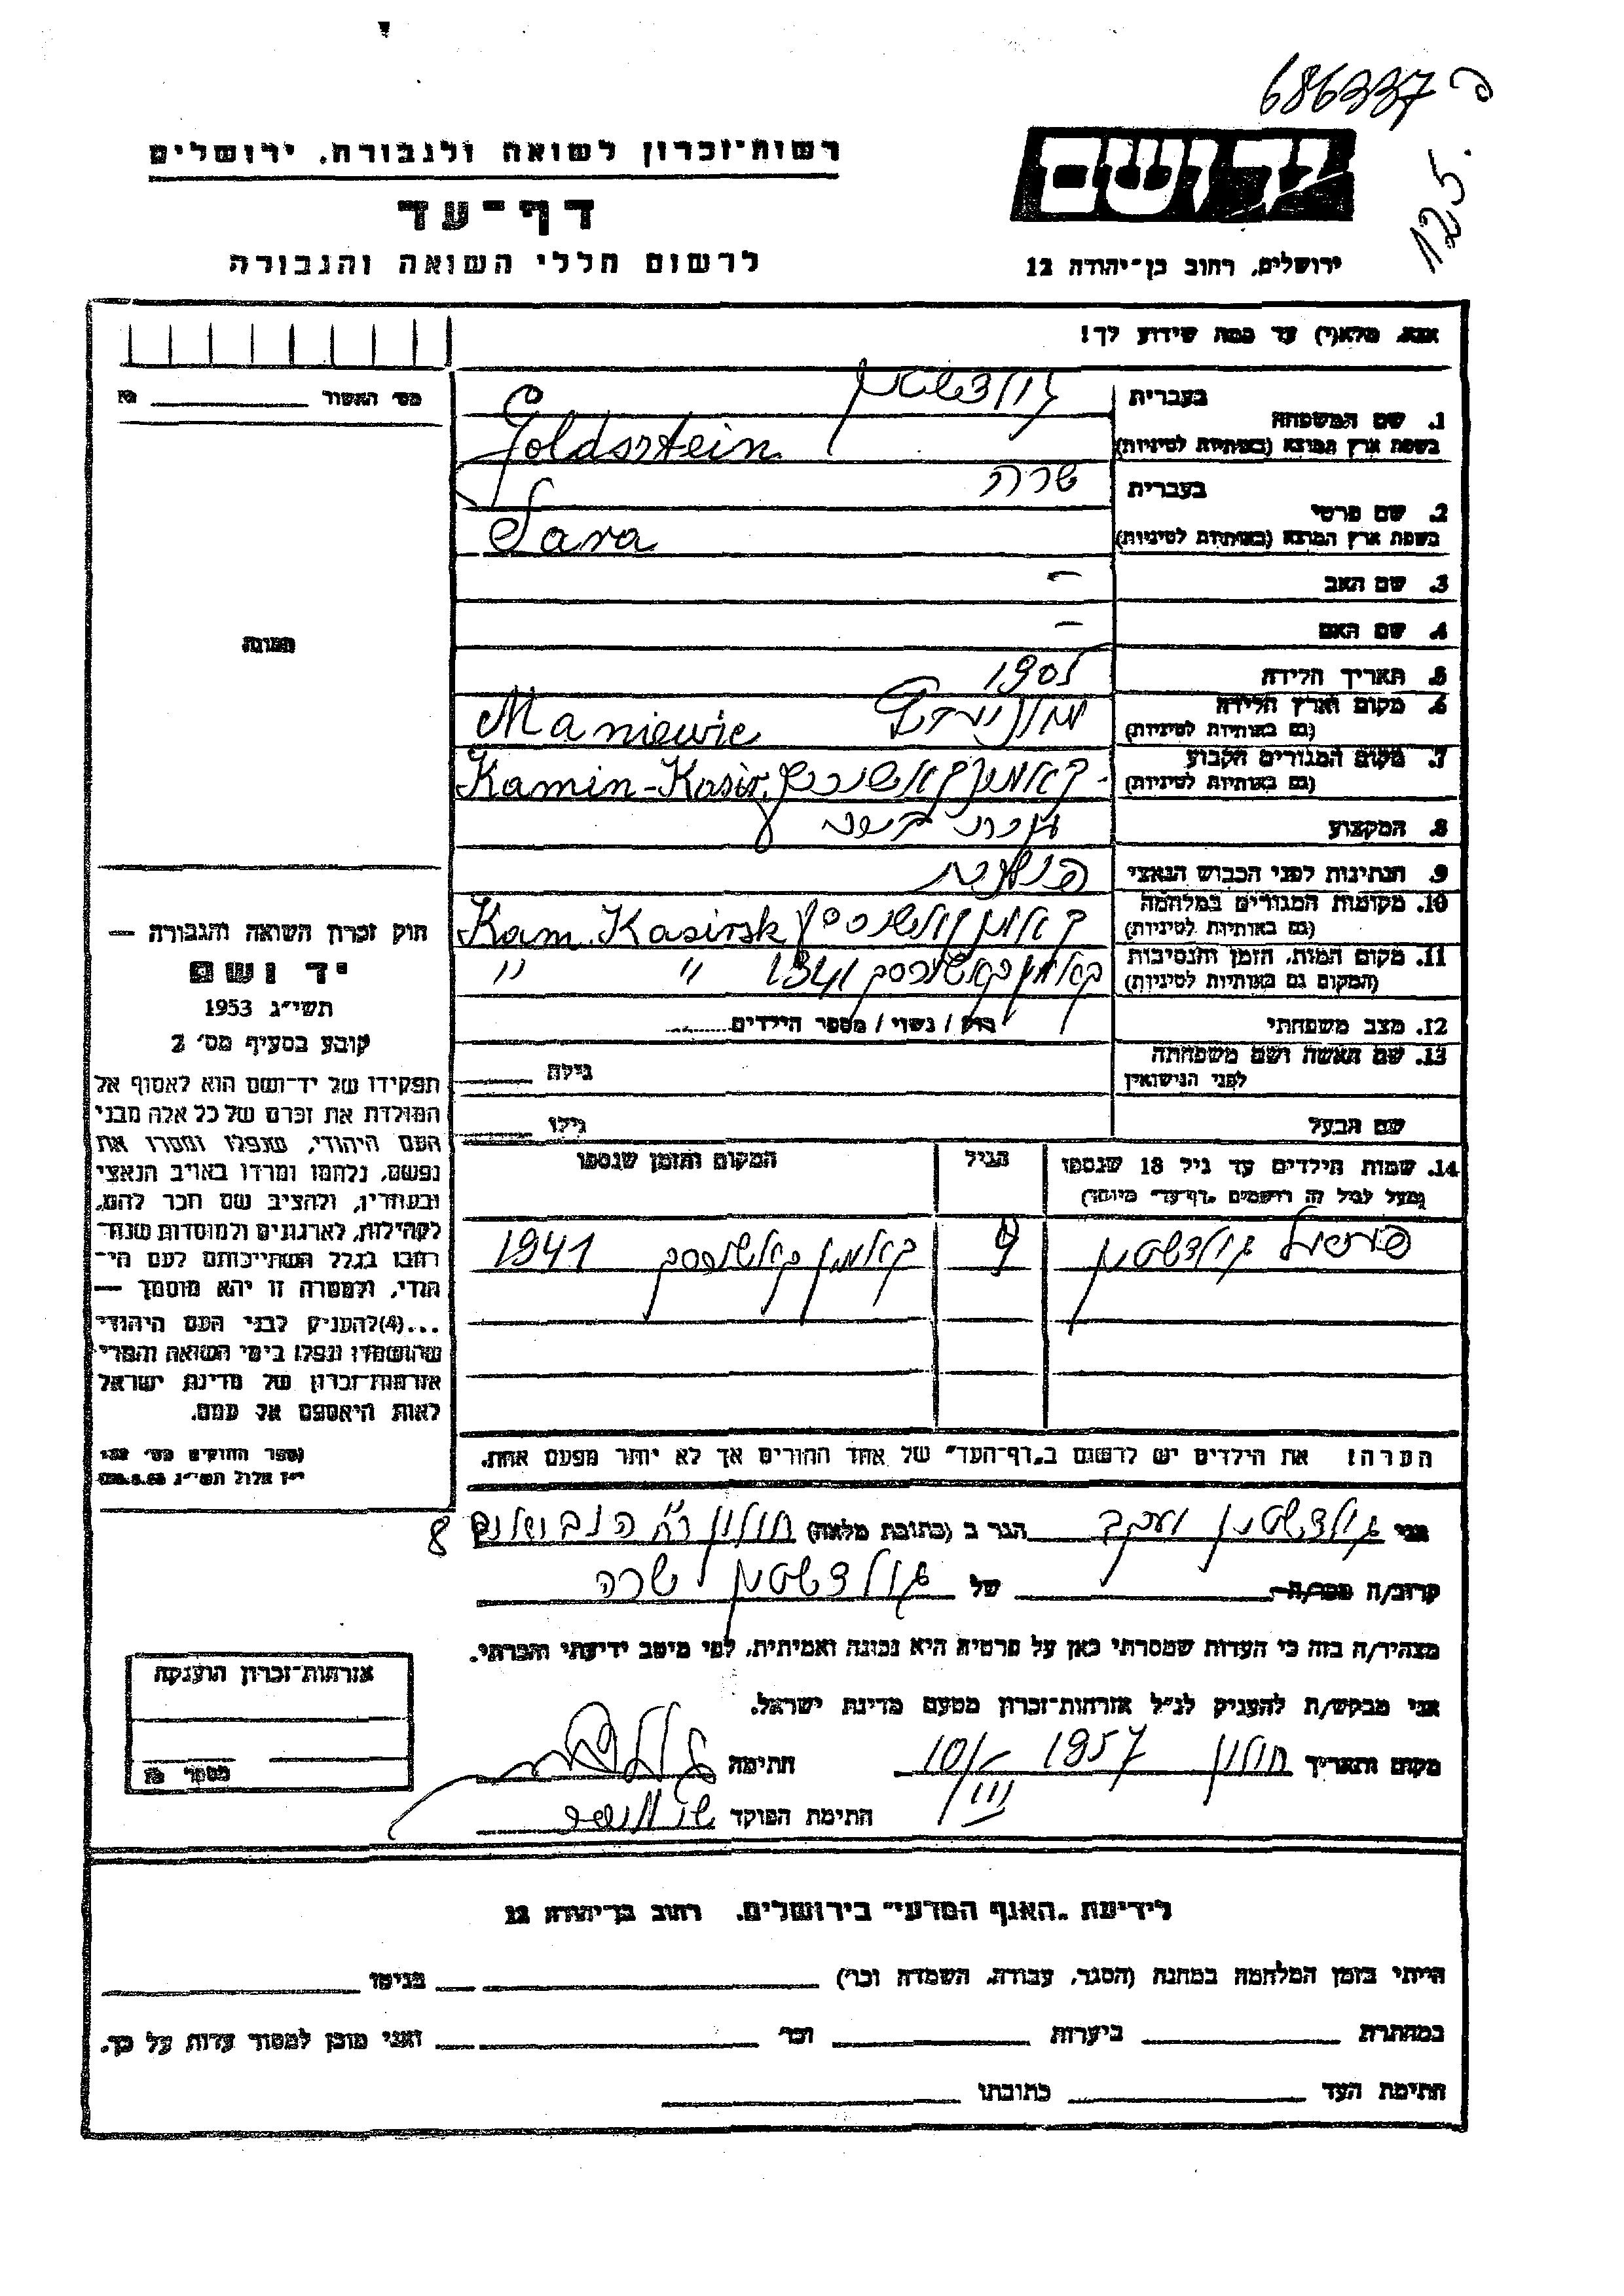 686337 פ
125.
יד ושם
ירושלים, רחוב בן־יהודה 12
רשות־זכרון לשואה ולגבורה, ירושלים
דף־עד
לרשום חללי השואה והגבורה
אנא, מלא(י) עד כמה שידוע לך!
מס׳ האשור
1. שם המשפחה
בעברית גולדשטין
בשפת ארץ המוצא (באותיות לטיניות) Goldsztein
2. שם פרטי
בעברית שרה
בשפת ארץ המוצא (באותיות לטיניות) Sara
3. שם האב –
4. שם האם –
5. תאריך הלידה 1905
6. מקום וארץ הלידה
(גם באותיות לטיניות) Maniewic
7. מקום המגורים הקבוע
(גם באותיות לטיניות) קאמין קאשירסק Kamin-Kasir.
8. המקצוע עקרת בית
9. הנתינות לפני הכבוש הנאצי פולנית
10. מקומות המגורים במלחמה
(גם באותיות לטיניות) קאמין קאשירסק Kam. Kasirsk
11. מקום המות, הזמן והנסיבות
(המקום גם באותיות לטיניות) קאמין קאשירסק 1941 " "
12. מצב משפחתי רווק / נשוי / מספר הילדים
13. שם האשה ושם משפחתה
לפני הנישואין גילה
שם הבעל גילו
14. שמות הילדים עד גיל 18 שנספו
(מעל לגיל זה רושמים "דף־עד" מיוחד)
הגיל
המקום והזמן שנספו
גולדשטין 9 קאמין קאשירסק 1941
הערה! את הילדים יש לרשום ב"דף־העד" של אחד ההורים אך לא יותר מפעם אחת.
תמונה
חוק זכרון השואה והגבורה —
יד ושם
תשי״ג 1953
קובע בסעיף מס׳ 2
תפקידו של יד־ושם הוא לאסוף אל
המולדת את זכרם של כל אלה מבני
העם היהודי, שנפלו ומסרו את
נפשם, נלחמו ומרדו באויב הנאצי
ובעוזריו, ולהציב שם וזכר להם,
לקהילות, לארגונים ולמוסדות שנח־
רבו בגלל השתייכותם לעם הי־
הודי, ולמטרה זו יהא מוסמך —
...(4)להעניק לבני העם היהודי
שהושמדו ונפלו בימי השואה והמרי
אזרחות־זכרון של מדינת ישראל
לאות היאספם אל עמם.
(ספר החוקים מס׳ 132
י״ז אלול תשי״ג 28.8.53)
אני גולדשטין יעקב הגר ב (כתובת מלאה) חולון רח׳ 8
קרוב/ה מכר/ה של גולדשטין שרה
מצהיר/ה בזה כי העדות שמסרתי כאן על פרטיה היא נכונה ואמיתית, לפי מיטב ידיעתי והכרתי.
אני מבקש/ת להעניק לנ״ל אזרחות־זכרון מטעם מדינת ישראל.
מקום ותאריך חולון 10/III 1957 חתימה
חתימת הפוקד
אזרחות־זכרון הוענקה
מספר
לידיעת "האגף המדעי" בירושלים, רחוב בן־יהודה 12
הייתי בזמן המלחמה במחנה (הסגר, עבודה, השמדה וכו׳) בגיטו
במחתרת ביערות וכו׳ ואני מוכן למסור עדות על כך.
חתימת העד כתובתו